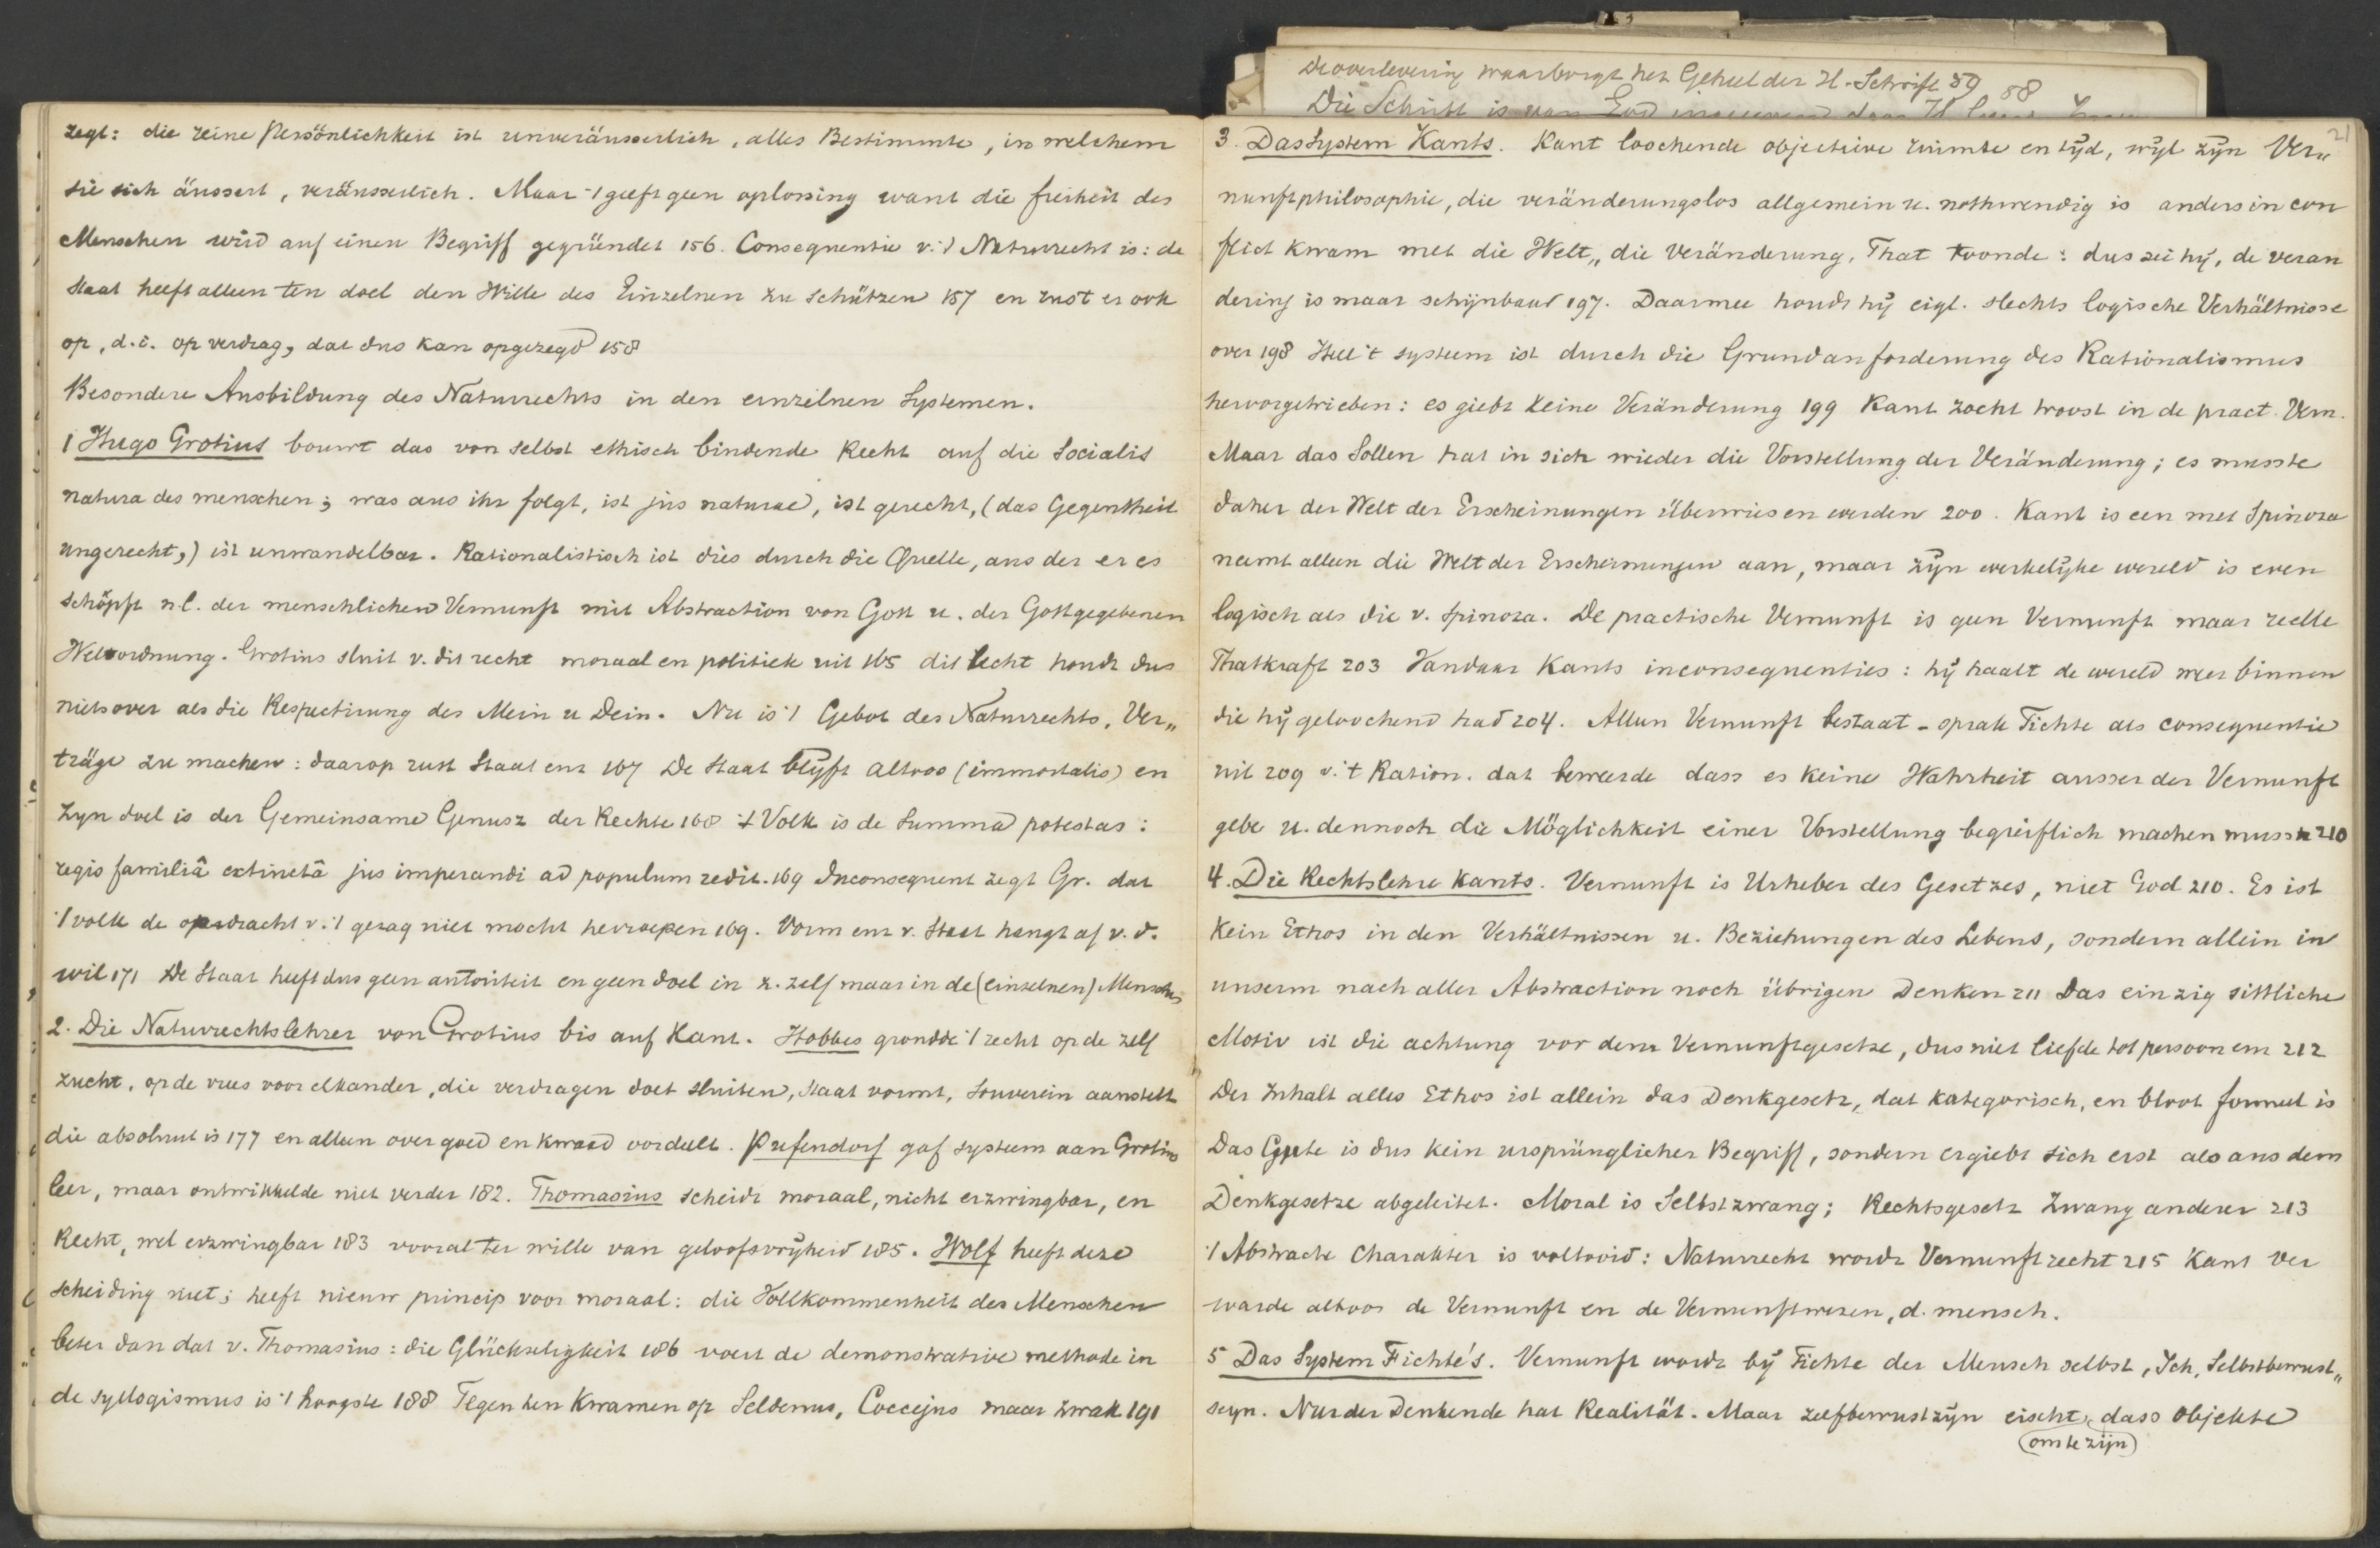 zegt: die reine Persönlichkeit ist unveräusserlich, alles Bestimmte, in welchem
sie sich äussert, veräusserlich. Maar 't geeft geen oplossing want die freiheit des
Menschen wird auf einen Begriff gegründet 156. Consequentie v. 't Naturrecht is: de
Staat heeft alleen ten doel den Wille des Einzelnen zu schützen 157 en rust er ook
op, d.i. op verdrag, dat dus kan opgezegd 158
Besondere Ausbildung des Naturrechts in den einzelnen Systemen.
1 Hugo Grotius bouwt das von selbst ethisch bindende Recht auf die Socialis
natura des menschen; was aus ihr folgt, ist jus naturae, ist gerecht, (das Gegentheil
ungerecht,) ist unwandelbar. Rationalistisch ist dies durch die Quelle, aus der er es
schöpft n.l. der menschlichen Vernunft mit Abstraction von Gott u. der Gottgegebenen
Weltordnung. Grotius sluit v. dit recht moraal en politiek uit 165 dit recht houdt dus
niets over als die Respectirung des Mein u Dein. Nu is 't Gebot des Naturrechts, Ver„
träge zu machen: daarop rust Staat enz 167 De Staat blijft altoos (immortalis) en
zyn doel is der Gemeinsame Genusz der Rechte 168 't Volk is de Summa potestas:
regis familiâ extinctâ jus imperandi ad populum redit. 169 Inconsequent zegt Gr. dat
't volk de opdracht v. 't gezag niet mocht herroepen 169. Vorm enz v. Staat hangt af v. d.
wil 171 De Staat heeft dus geen autoriteit en geen doel in z. zelf maar in de (einzelnen) Menschen
2. Die Naturrechtslehrer von Grotius bis auf Kant. Hobbes grondde 't recht op de zelf
zucht, op de vrees voor elkander, die verdragen doet sluiten, Staat vormt, Souverein aanstelt
die absoluut is 177 en alleen over goed en kwaad oordeelt. Pufendorf gaf systeem aan Grotius
leer, maar ontwikkelde niet verder 182. Thomasius scheidt moraal, nicht erzwingbar, en
Recht, wel erzwingbar 183 vooral ter wille van geloofsvrijheid 185. Wolf heeft deze
scheiding niet; heeft nieuw princip voor moraal: die Vollkommenheit des Menschen
beter dan dat v. Thomasius: die Glückseligkeit 186 voert de demonstrative methode in
de syllogismus is 't hoogste 188 Tegen hen kwamen op Seldenus, Coccejus maar zwak 191
De overlevering waarborgt het Geheel der H. Schrift 59 58
21
3. Das System Kants. Kant loochende objectieve ruimte en tijd, wijl zijn Ver„
nunftphilosophie, die veränderungslos allgemein u. nothwendig is anders in con
flict kwam met die Welt, die Veränderung, That toonde: dus zei hij, de veran
dering is maar schijnbaar 197. Daarmee houdt hij eigl. slechts logische Verhältnisse
over 198 Heel 't systeem ist durch die Grundanforderung des Rationalismus
hervorgetrieben: es giebt keine Veränderung 199 Kant zocht troost in de pract. Vern.
Maar das Sollen hat in sich wieder die Vorstellung der Veränderung; es musste
daher der Welt der Erscheinungen überwiesen werden 200. Kant is een met Spinoza
neemt alleen die Welt der Erscheinungen aan, maar zijn werkelijke wereld is even
logisch als die v. Spinoza. De practische Vernunft is geen Vernunft maar reelle
Thatkraft 203 Vandaar Kants inconsequenties: hij haalt de wereld weer binnen
die hij geloochend had 204. Alleen Vernunft bestaat - sprak Fichte als consequentie
uit 209 v. 't Ration. dat beweerde dass es keine Wahrheit ausser der Vernunft
gebe u. dennoch die Möglichkeit einer Vorstellung begreiflich machen muss 210
4. Die Rechtslehre Kants. Vernunft is Urheber des Gesetzes, niet God 210. Es ist
Kein Ethos in den Verhältnissen u. Beziehungen des Lebens, sondern allein in
unserm nach aller Abstraction noch übrigen Denken 211 Das einzig sittliche
Motiv ist die achtung vor dem Vernunftgesetze, dus niet liefde tot persoon enz 212
Der Inhalt alles Ethos ist allein das Denkgesetz, dat kategorisch, en bloot formeel is
Das Gute is dus kein ursprünglicher Begriff, sondern ergiebt sich erst als aus dem
Denkgesetze abgeleitet. Moral is Selbstzwang; Rechtsgesetz Zwang anderer 213
't Abstracte Charakter is voltooid: Naturrecht wordt Vernunftrecht 215 Kant ver
warde altoos de Vernunft en de Vernunftwezen, d. mensch.
5 Das System Fichte's. Vernunft wordt bij Fichte der Mensch selbst, Ich, Selbstbewust„
seyn. Nur der Denkende hat Realität. Maar zelfbewustzijn eischt, dass Objekte
(om te zijn)